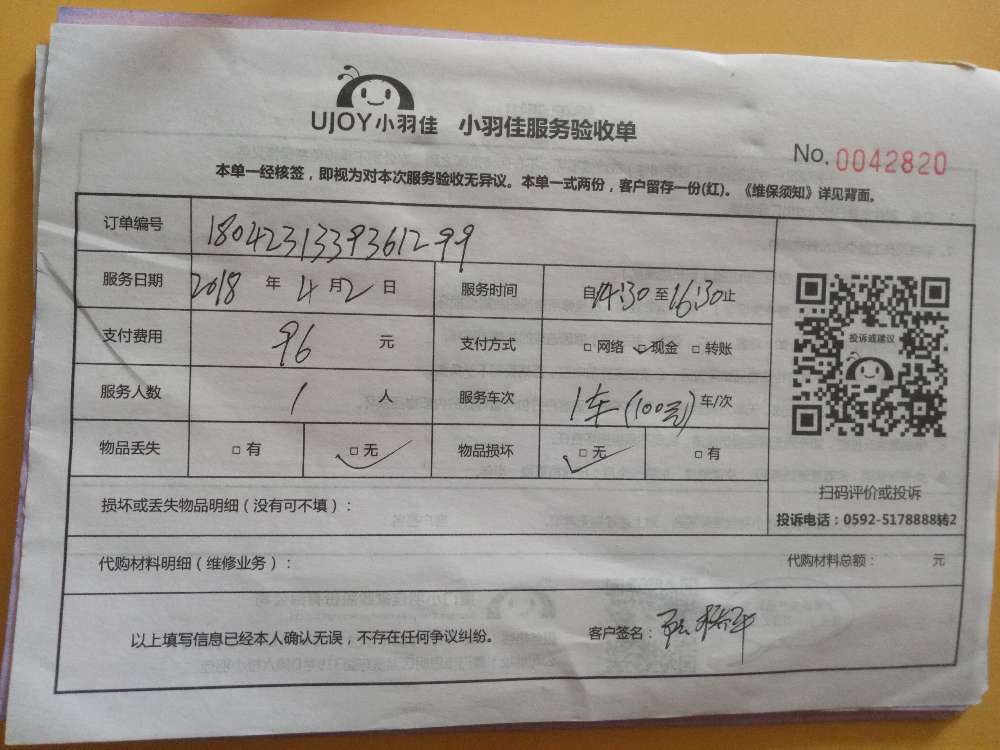 UJOY小羽佳 小羽佳服务验收单
No. 0042820
本单一经核签，即视为对本次服务验收无异议。本单一式两份，客户留存一份(红)。《维保须知》详见背面。
订单编号 1804231339361299
服务日期 2018 年 4 月 2 日 服务时间 自14:30 至16:30止
支付费用 96 元 支付方式 □ 网络 □ 现金 □ 转账
服务人数 1 人 服务车次 1车(100元) 车/次
物品丢失 □ 有 □ 无 物品损坏 □ 无 □ 有
投诉或建议
扫码评价或投诉
投诉电话：0592-5178888转2
损坏或丢失物品明细（没有可不填）：
代购材料明细（维修业务）： 代购材料总额： 元
以上填写信息已经本人确认无误，不存在任何争议纠纷。 客户签名：